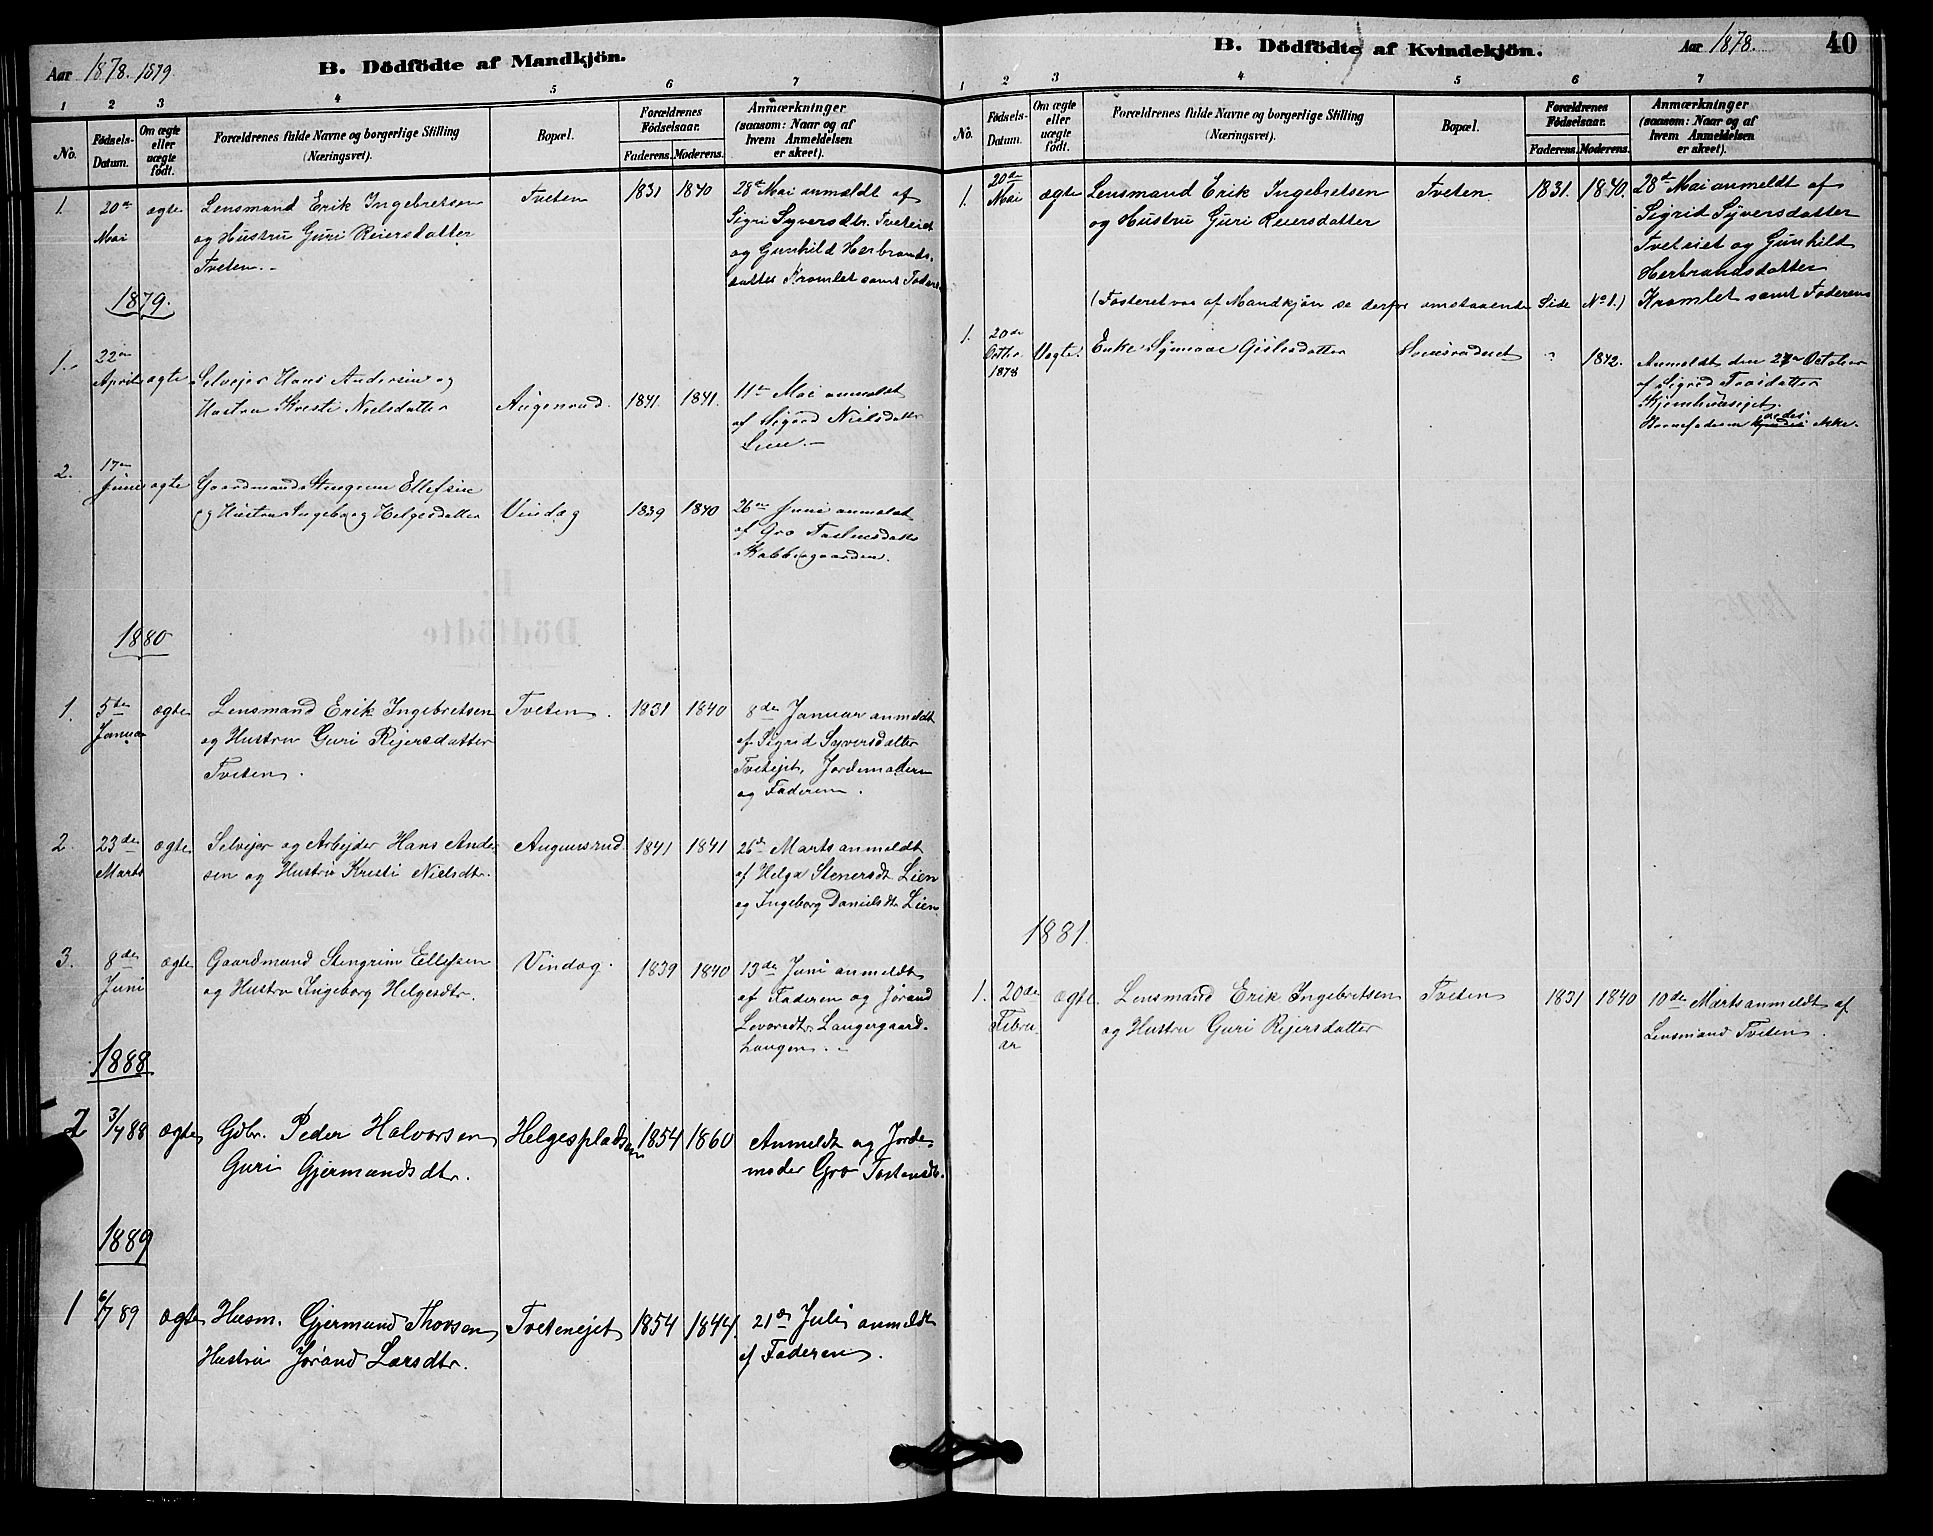 Aar 1878. 1879.
B. Dödfödte af Mandkjön.
1 2 3 4 5 6 7
No.
Fødsels-
Datum.
Om ægte
eller
uægte
født.
Forældrenes fulde Navne og borgerlige Stilling
(Næringsvei).
Bopæl.
Forældrenes
Fødselsaar.
Faderens. Moderens.
Anmærkninger
(saasom: Naar og af
hvem Anmeldelsen
er skeet).
1. 20de ægte Lensmand Erik Ingebretsen Tveten 1831 1840 28de Mai anmeldt af
Mai og Hustru Guri Reiersdatter Sigri Syversdtr. Tveteiet
Tveten. og Gunhild Herbrands-
datter Kromlet samt Faderen
1879.
1. 22de
April ægte Selveier Hans Andersen og
Hustru Kristi Nielsdatter 1841. 1841. 11te Mai anmeldt
af Sigrid Nielsdatter
Lien.
2. 17de
Juni ægte Gaardmand Stengrim Ellefsen
og Hustru Ingeborg Helgesdatter Vindeg 1839 1840 26de Juni anmeldt
af Gro
1880
1. 5te ægte Lensmand Erik Ingebretsen Tveten. 1831 1840 8de Januar anmeldt
Januar og Hustru Guri Rejersdatter af Sigrid Syversdatter
Tveten. Tvetejet, Jordemoderen
og Faderen.
2. 23de ægte Selvejer og Arbejder Hans Ander- Augunsrud 1841 1841 26de Marts anmeldt
Marts sen og Hustru Kristi Nielsdtr. af Helga Stenersdt. Lien
og Ingeborg Danielsdtr. Lien
3. 8de ægte Gaardmand Stengrim Ellefsen Vindeg. 1839 1840 13de Juni anmeldt
Juni og Hustru Ingeborg Helgesdtr. af Faderen og Jørand
Levordtr. Langergaard-
haugen.
1888
2 3/7 88 ægte Gdbr. Peder Halvorsen Helgespladsen 1854 1860 Anmeldt og Jorde-
Guri Gjermundsdtr. moder Gro Tostensdtr.
1889
1 6/7 89 ægte Husm. Gjermund Thorsen Tvetenejet 1854 1844. 21de Juli anmeldt
Hustru Jørand Larsdtr. af Faderen.
B. Dödfödte af Kvindekjön.
Aar 1878.
40
1 2 3 4 5 6 7
No.
Fødsels-
Datum.
Om ægte
eller
uægte
født.
Forældrenes fulde Navne og borgerlige Stilling
(Næringsvei).
Bopæl.
Forældrenes
Fødselsaar.
Faderens. Moderens.
Anmærkninger
(saasom: Naar og af
hvem Anmeldelsen
er skeet).
1. 20de ægte Lensmand Erik Ingebretsen Tveten 1831. 1840. 28de Mai anmeldt af
Mai og Hustru Guri Reiersdatter Sigrid Syversdatter
Tveteiet og Gunhild
Herbrandsdatter
(Fosteret var af Mandkjøn se derfor omstaaende Side No 1.) Kromlet samt Faderen
1. 20de
Octbr. Uægte. Enke Gislesdatter " 1842. Anmeldt den 27de October
1878 af Sigrid
Barnefaderen ikke.
1881.
1. 20de ægte. Lensmand Erik Ingebretsen Tveten 1831 1840 10de Marts anmeldt af
Febru- og Hustru Guri Rejersdatter Lensmand Tveten.
ar